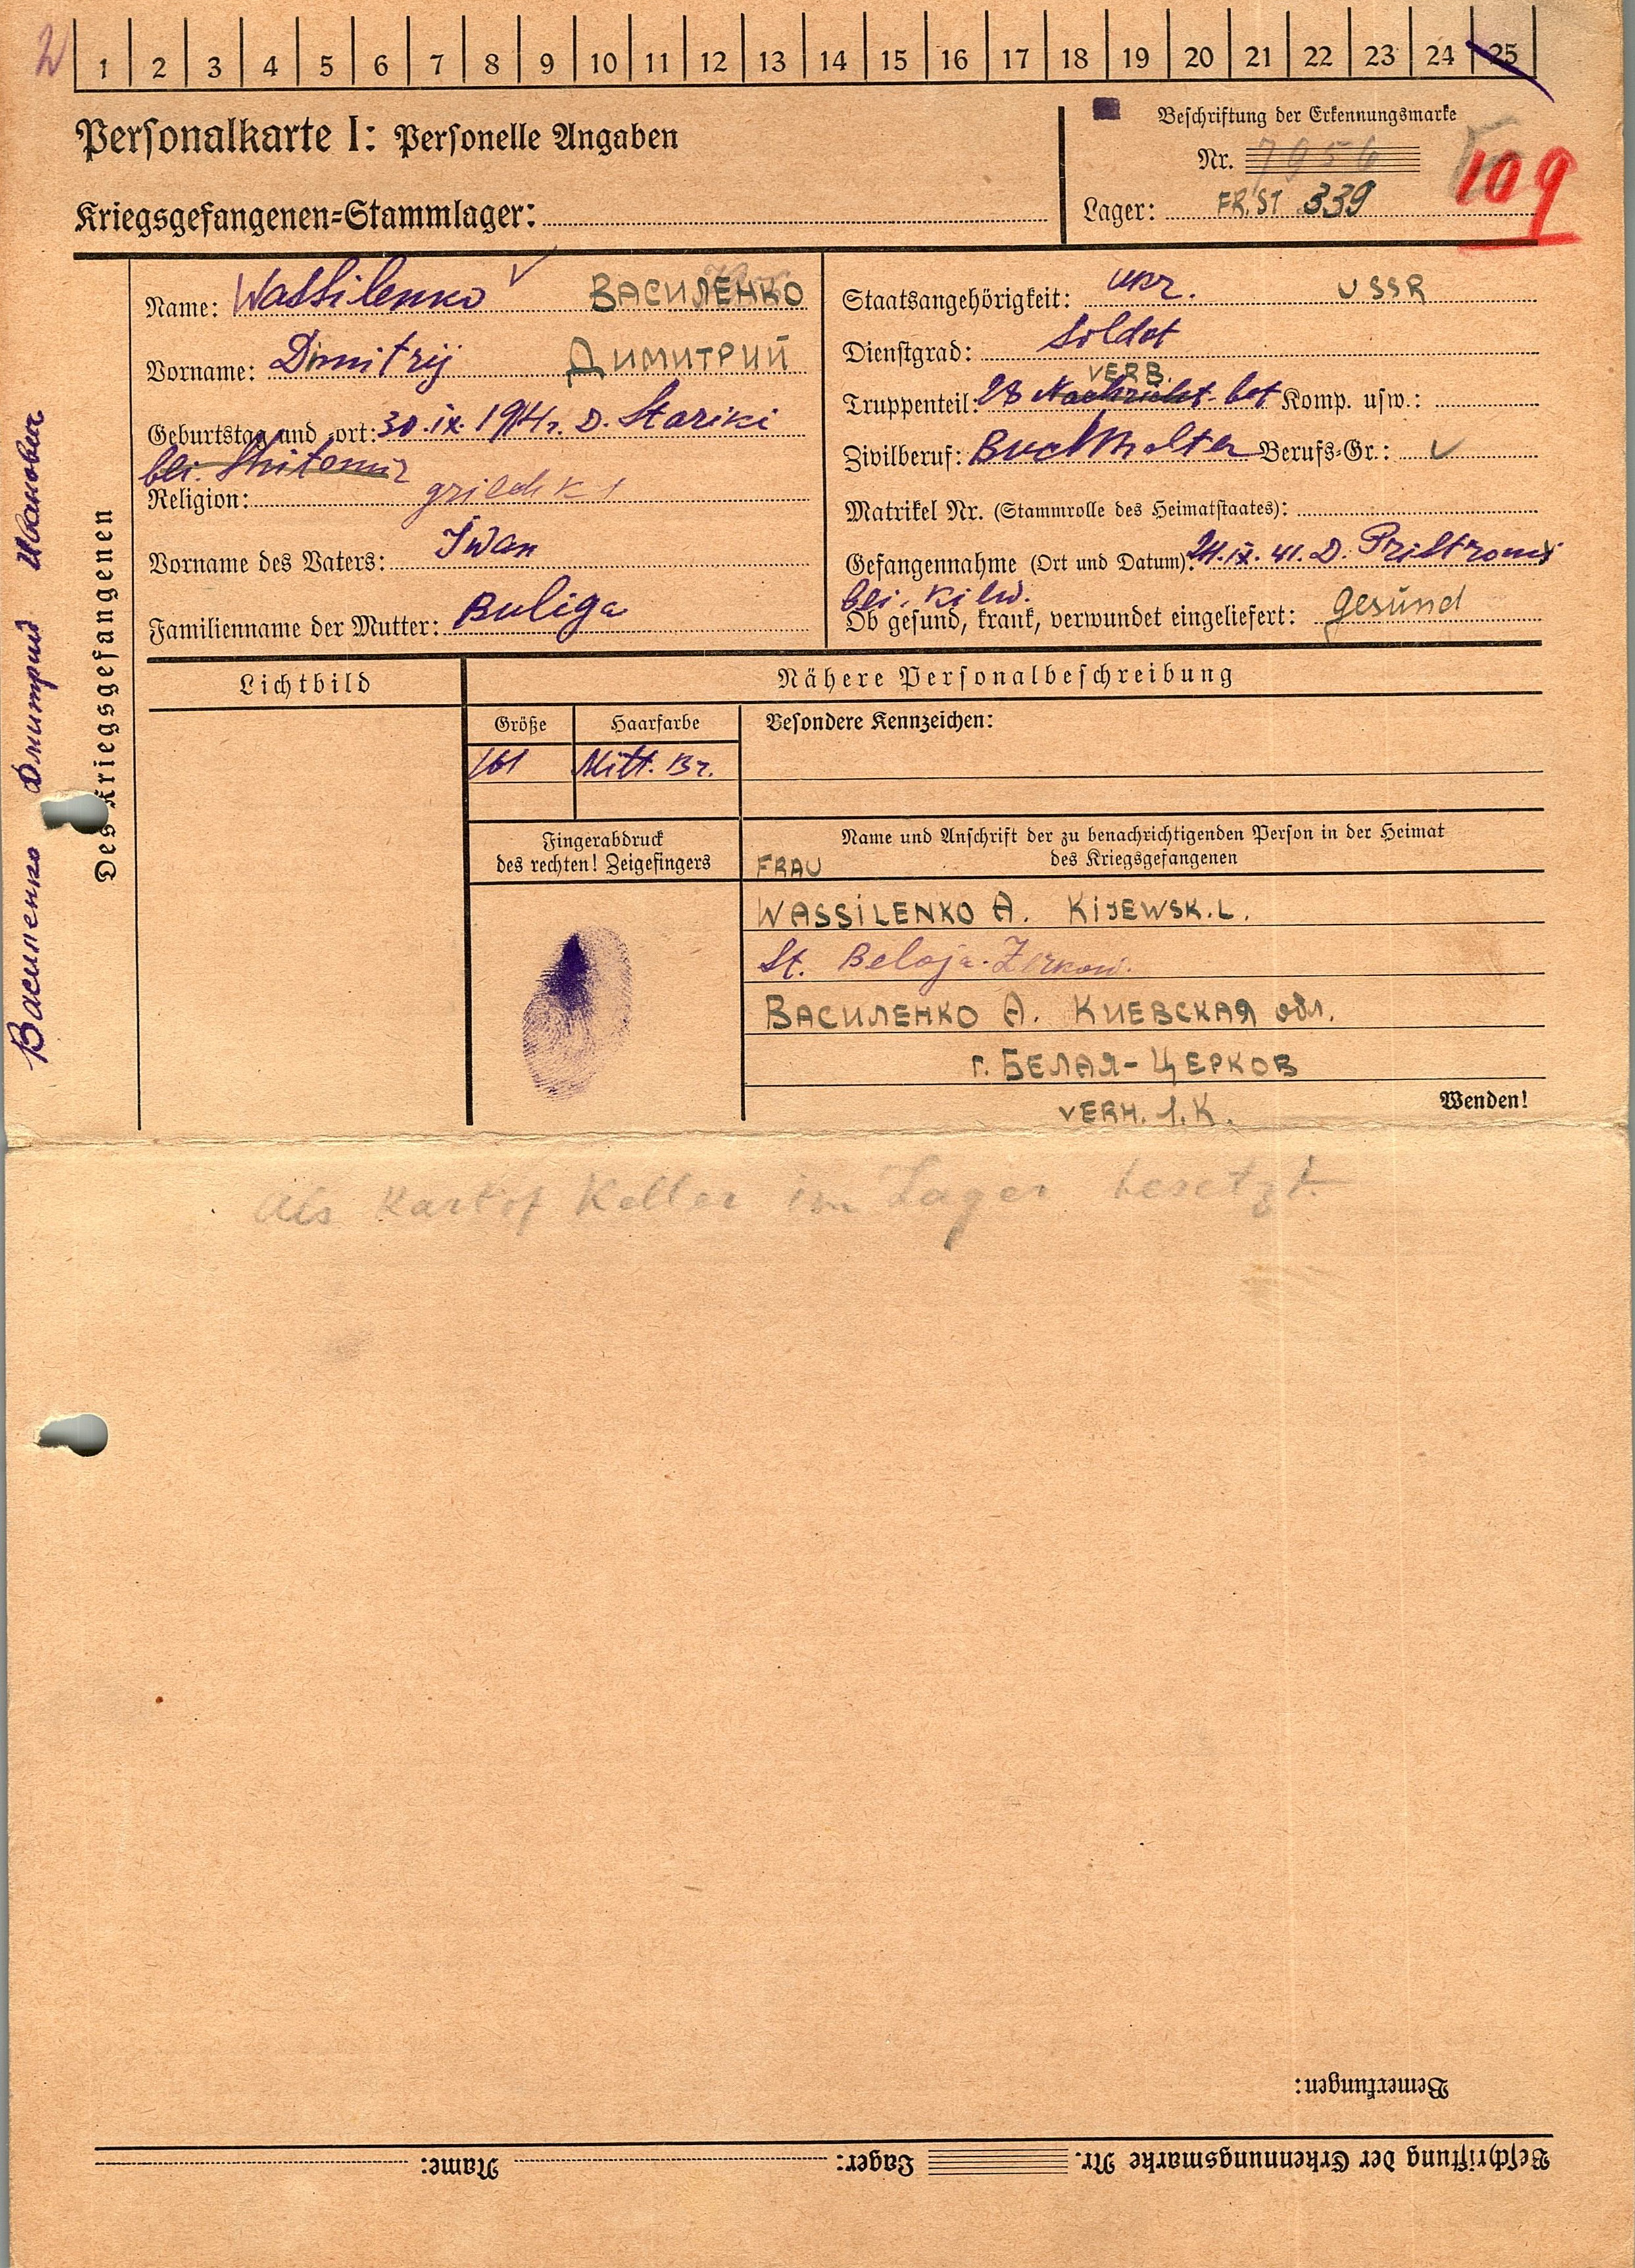 1 2 3 4 5 6 7 8 9 10 11 12 13 14 15 16 17 18 19 20 21 22 23 24 25
Personalkarte I: Personelle Angaben
Beschriftung der Erkennungsmarke
Nr. 7956
109
Kriegsgefangenen-Stammlager:
Lager: FR.ST 339
Des Kriegsgefangenen
Василенко Дмитрий Иванович
Name: Wassilenko ВАСИЛЕНКО
Vorname: Dimitrij ДИМИТРИЙ
Geburtstag und -ort: 30.IX.1914. D. Stariki
bei. Shitomir
Religion:
Vorname des Vaters: Iwan
Familienname der Mutter: Buliga
Staatsangehörigkeit: ukr. USSR
Dienstgrad: Soldat
VERB.
Truppenteil: 28 Nachricht. bat Komp. usw.:
Zivilberuf: Buchhalter Berufs-Gr.:
Matrikel Nr. (Stammrolle des Heimatstaates):
Gefangennahme (Ort und Datum): 24.IX.41. D.
bei. Kiew.
Ob gesund, krank, verwundet eingeliefert: gesund
Lichtbild
Nähere Personalbeschreibung
Größe Haarfarbe Besondere Kennzeichen:
161 Mitt. Br.
Fingerabdruck
des rechten! Zeigefingers
Name und Anschrift der zu benachrichtigenden Person in der Heimat
des Kriegsgefangenen
FRAU
WASSILENKO A. KIJEWSK.L.
St. Beloja-Zerkow.
ВАСИЛЕНКО А. КИЕВСКАЯ обл.
г. БЕЛАЯ-ЦЕРКОВ
VERH. 1.K.
Wenden!
Als Kartof Keller im Lager besetzt
Bemerkungen:
Beschriftung der Erkennungsmarke Nr. Lager: Name: